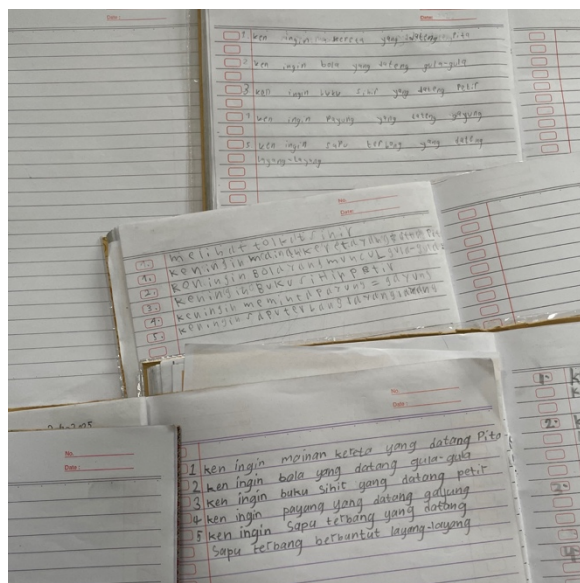 Date:
Date:
1 ken ingin kereta yang dateng pita
2 ken ingin bola yang dateng gula-gula
3 ken ingin buku sihir yang dateng petir
4 ken ingin payung yang dateng gayung
5 ken ingin sapu terbang yang dateng
layang-layang
No.
Date:
melihat tolkat sihir
1. keningin mainan kereta yang
2. keningin Bola yang muncul gula-gula
3. keningin Buku sihir petir
4. keningin meminta payung = gayung
5. keningin saputerbang layanglayang
No.
Date:
1 ken ingin mainan kereta yang datang Pita
2 ken ingin bola yang datang gula-gula
3 ken ingin buku sihit yang datang petir
4 ken ingin payang yang datang gayung
5 ken ingin sapu terbang yang datang
sapu terbang berbuntut layang-layang
No.
Date:
1. K
2.